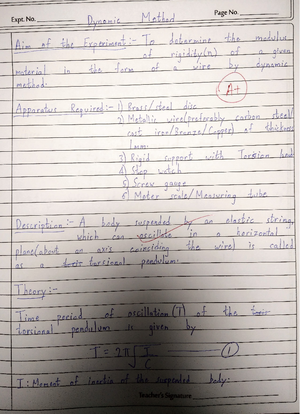 Expt. No.
Page No.
Dynamic Method
Aim of the Experiment:- To determine the modulus
of rigidity(n) of a given
material in the form of a wire by dynamic
method.
A+
Apparatus Required:- 1) Brass/steel disc
2) Metallic wire(preferably carbon steel/
cast iron/Bronze/Copper) of thickness
1mm.
3) Rigid support with Torsion head
4) Stop watch
5) Screw gauge
6) Meter scale/Measuring tube
Description:- A body suspended by an elastic string,
which can oscillate in a horizontal
plane(about an axis coinsiding the wire) is called
as a torsional pendulum.
Theory:-
Time period of oscillation(T) of the
torsional pendulum is given by
T = 2π√I/C ①
I: Moment of inertia of the suspended body.
Teacher's Signature